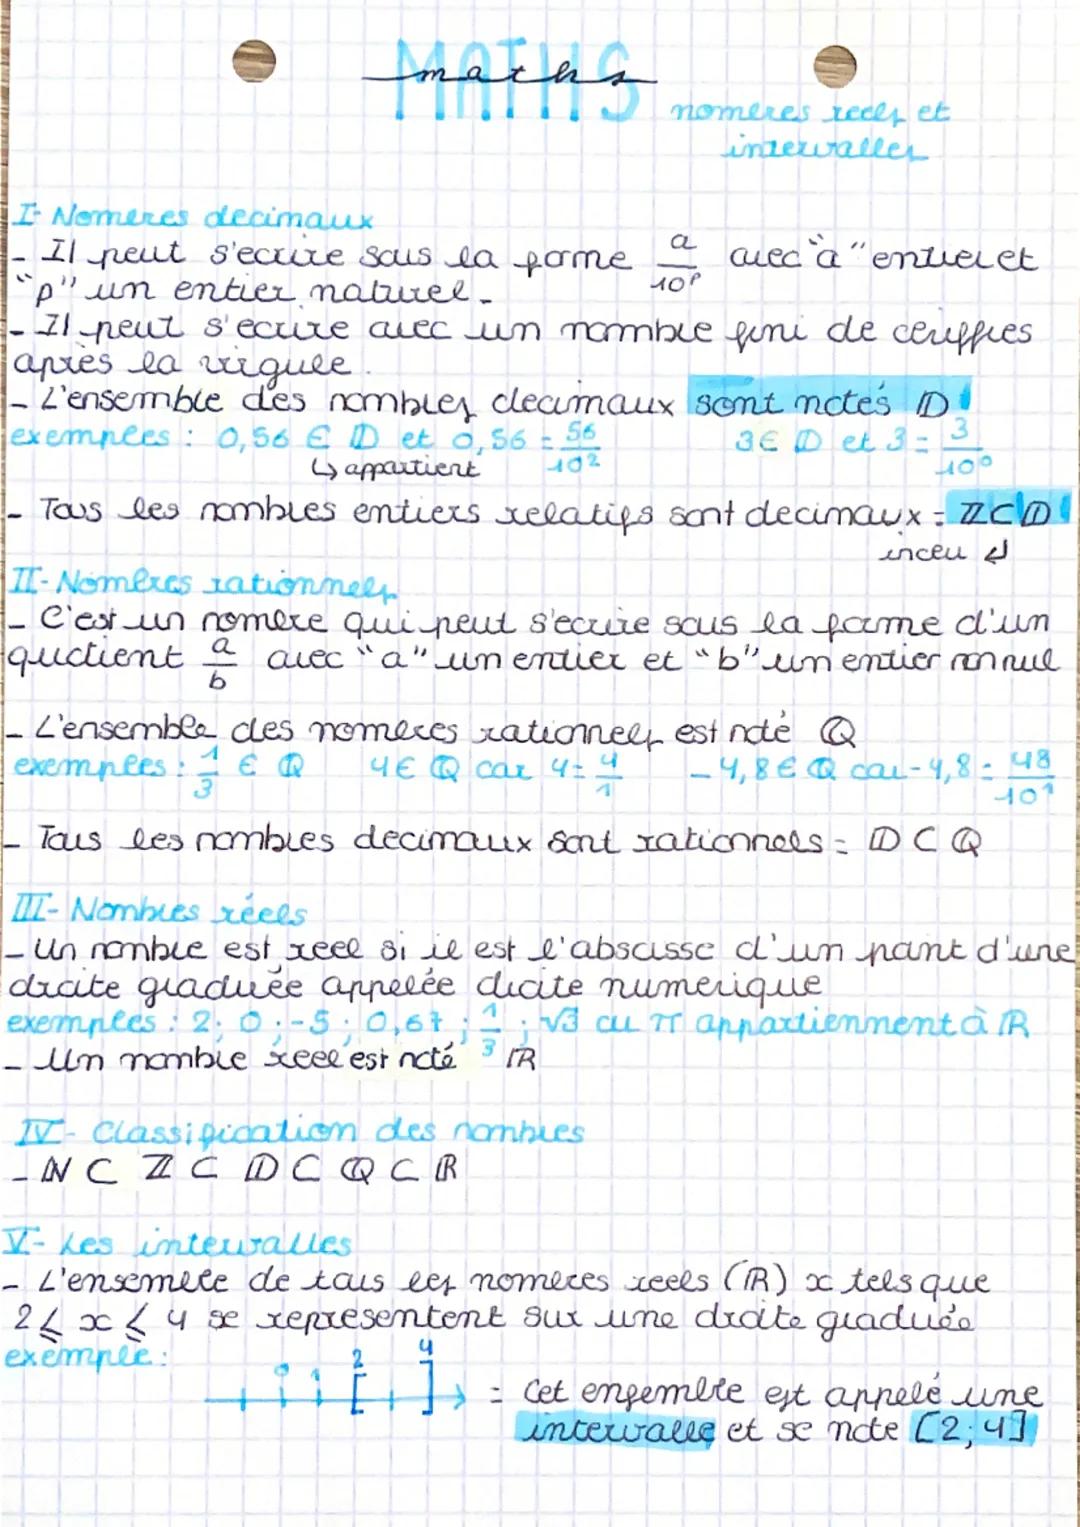 MATHS
maths
nombres reels et
intervalles
I- Nombres decimaux
- Il peut s'ecrire sous la forme a/10^p avec "a" entier et
"p" un entier naturel.
- Il peut s'ecrire avec un nombre fini de chiffres
après la virgule.
- L'ensemble des nombres decimaux sont notés 𝔻!
exemples : 0,56 ∈ 𝔻 et 0,56 = 56/10² 3 ∈ 𝔻 et 3 = 3/10⁰
↳ appartient
- Tous les nombres entiers relatifs sont decimaux = ℤ ⊂ 𝔻!
inclu ↲
II- Nombres rationnels
- C'est un nombre qui peut s'ecrire sous la forme d'un
quotient a/b avec "a" un entier et "b" un entier non nul
- L'ensemble des nombres rationnels est noté ℚ
exemples : 1/3 ∈ ℚ 4 ∈ ℚ car 4 = 4/1 -4,8 ∈ ℚ car -4,8 = 48/10¹
- Tous les nombres decimaux sont rationnels = 𝔻 ⊂ ℚ
III- Nombres réels
- Un nombre est reel si il est l'abscisse d'un point d'une
droite graduée appelée droite numerique
exemples : 2 ; 0 ; -5 ; 0,67 ; 1/3 ; √3 ou π appartiennent à ℝ
- Un nombre reel est noté ℝ
IV- Classification des nombres
- ℕ ⊂ ℤ ⊂ 𝔻 ⊂ ℚ ⊂ ℝ
V- Les intervalles
- L'ensemble de tous les nombres reels (ℝ) x tels que
2 ⩽ x ⩽ 4 se representent sur une droite graduée
exemple :
0 1 2 4
[ ]
= Cet ensemble est appelé une
intervalle et se note [2;4]